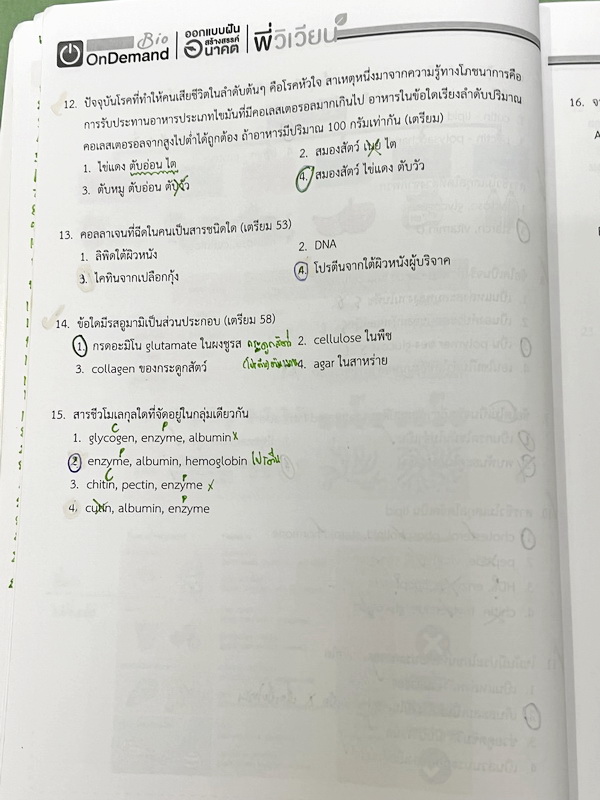 Bio
OnDemand
ออกแบบฝัน
สร้างสรรค์
อนาคต
พี่วิเวียน
12. ปัจจุบันโรคที่ทำให้คนเสียชีวิตในลำดับต้นๆ คือโรคหัวใจ สาเหตุหนึ่งมาจากความรู้ทางโภชนาการคือ
การรับประทานอาหารประเภทไขมันที่มีคอเลสเตอรอลมากเกินไป อาหารในข้อใดเรียงลำดับปริมาณ
คอเลสเตอรอลจากสูงไปต่ำได้ถูกต้อง ถ้าอาหารมีปริมาณ 100 กรัมเท่ากัน (เตรียม)
1. ไข่แดง ตับอ่อน ไต
2. สมองสัตว์ เนย ไต
3. ตับหมู ตับอ่อน ตับวัว
4. สมองสัตว์ ไข่แดง ตับวัว
13. คอลลาเจนที่ฉีดในคนเป็นสารชนิดใด (เตรียม 53)
1. ลิพิดใต้ผิวหนัง
2. DNA
3. ไคทินจากเปลือกกุ้ง
4. โปรตีนจากใต้ผิวหนังผู้บริจาค
14. ข้อใดมีรสอูมามิเป็นส่วนประกอบ (เตรียม 58)
1. กรดอะมิโน glutamate ในผงชูรส
2. cellulose ในพืช
3. collagen ของกระดูกสัตว์
4. agar ในสาหร่าย
15. สารชีวโมเลกุลใดที่จัดอยู่ในกลุ่มเดียวกัน
C P
1. glycogen, enzyme, albumin x
P
2. enzyme, albumin, hemoglobin โปรตีน
C P
3. chitin, pectin, enzyme x
P
4. cutin, albumin, enzyme
16. จ